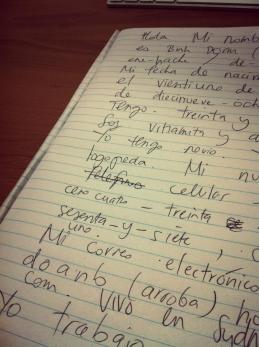 Hola Mi nomb
es Binh Doan (
ene-hache / de-
Mi fecha de nacim
el vientiuno de
de diecinueve-och
Tengo treinta y
Soy vithamita y a
Yo tengo novio.
logopeda. Mi nu
Telefino celular
cero cuatro - treinta
sesenta-y-siete, c
uno.
Mi correo electrónico
doanb (arroba) ho
com. Vivo en Sydn
Yo trabajo